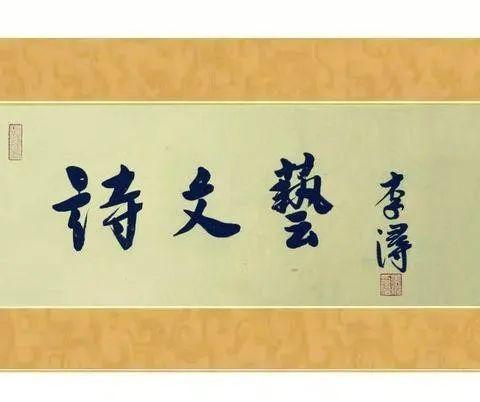 詩文藝
李潯